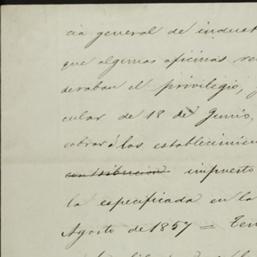 cia general de indust
que algunas oficinas re
deraban el privilegio,
cular de 18 de Junio,
cobrar á los establecimien
contribucion impuesto
la especificada en la
Agosto de 1857 = Ten